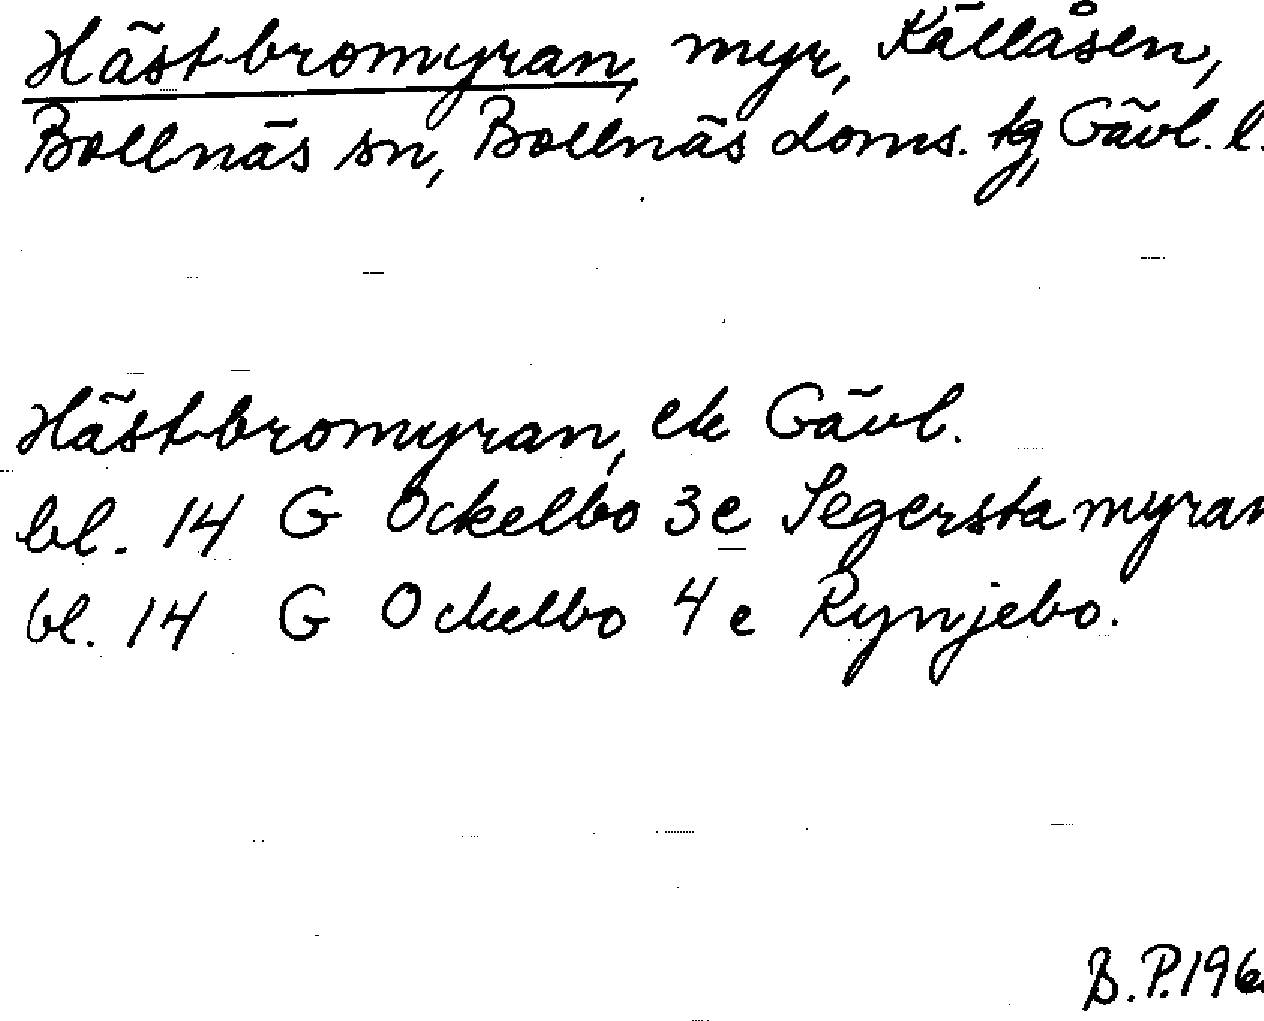 Hästbromyran, myr, Källåsen,
Bollnäs sn, Bollnäs doms. tg, Gävl. l.
Hästbromyran, ek Gävl.
bl. 14 G Ockelbo 3e Segerstamyran
bl. 14 G Ockelbo 4e Rynjebo.
B.P. 196